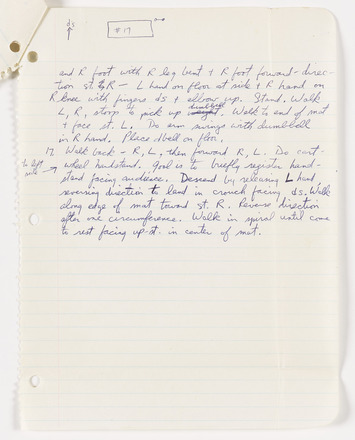 ds
#17
and R foot with R leg bent & R foot forward - direc-
tion st. R - L hand on floor at side & R hand on
R knee with fingers ds & elbow up. Stand. Walk
L, R, stoop to pick up dumbbell. Walk to end of mat
& face st. L. Do arm swings with dumbbell
in R hand. Place d/bell on floor.
17 Walk back - R, L, then forward R, L. Do cart-
to left side → wheel handstand. Goal is to briefly register hand-
stand facing audience. Descend by releasing L hand,
reversing direction to land in crouch facing ds. Walk
along edge of mat toward st. R. Reverse direction
after one circumference. Walk in spiral until come
to rest facing up st. in center of mat.